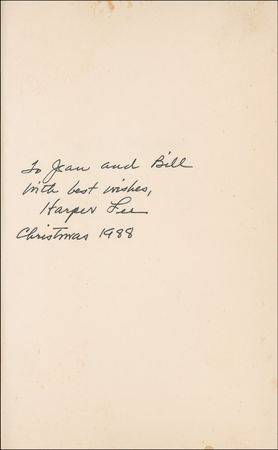 To Jean and Bill
with best wishes,
Harper Lee
Christmas 1988